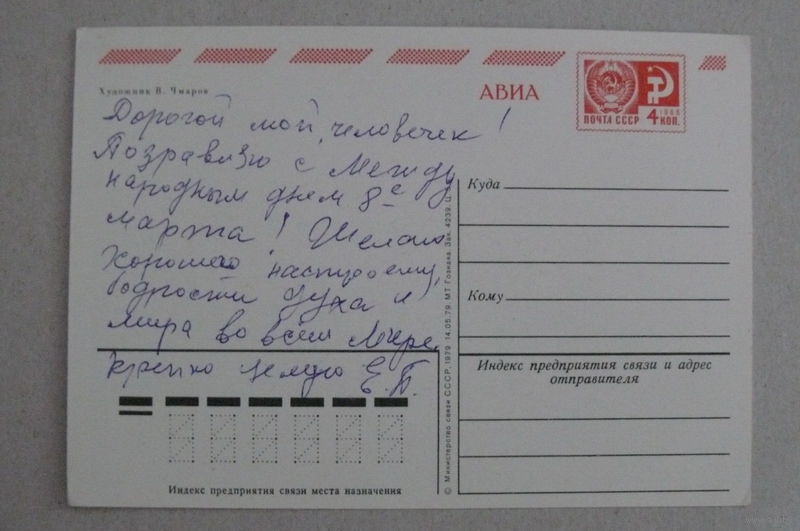 Художник В. Чмаров
АВИА
ПОЧТА СССР
1966
4 КОП.
Дорогой мой человечек!
Поздравляю с Между
народным днем 8е
марта! Желаю
хорошего настроения,
бодрости духа и
мира во всем Мире.
Крепко целую Е.Б.
Куда
Кому
Индекс предприятия связи и адрес
отправителя
Индекс предприятия связи места назначения
© Министерство связи СССР, 1979 14.05.79. МТ Гознака. Зак. 4239. Ц.